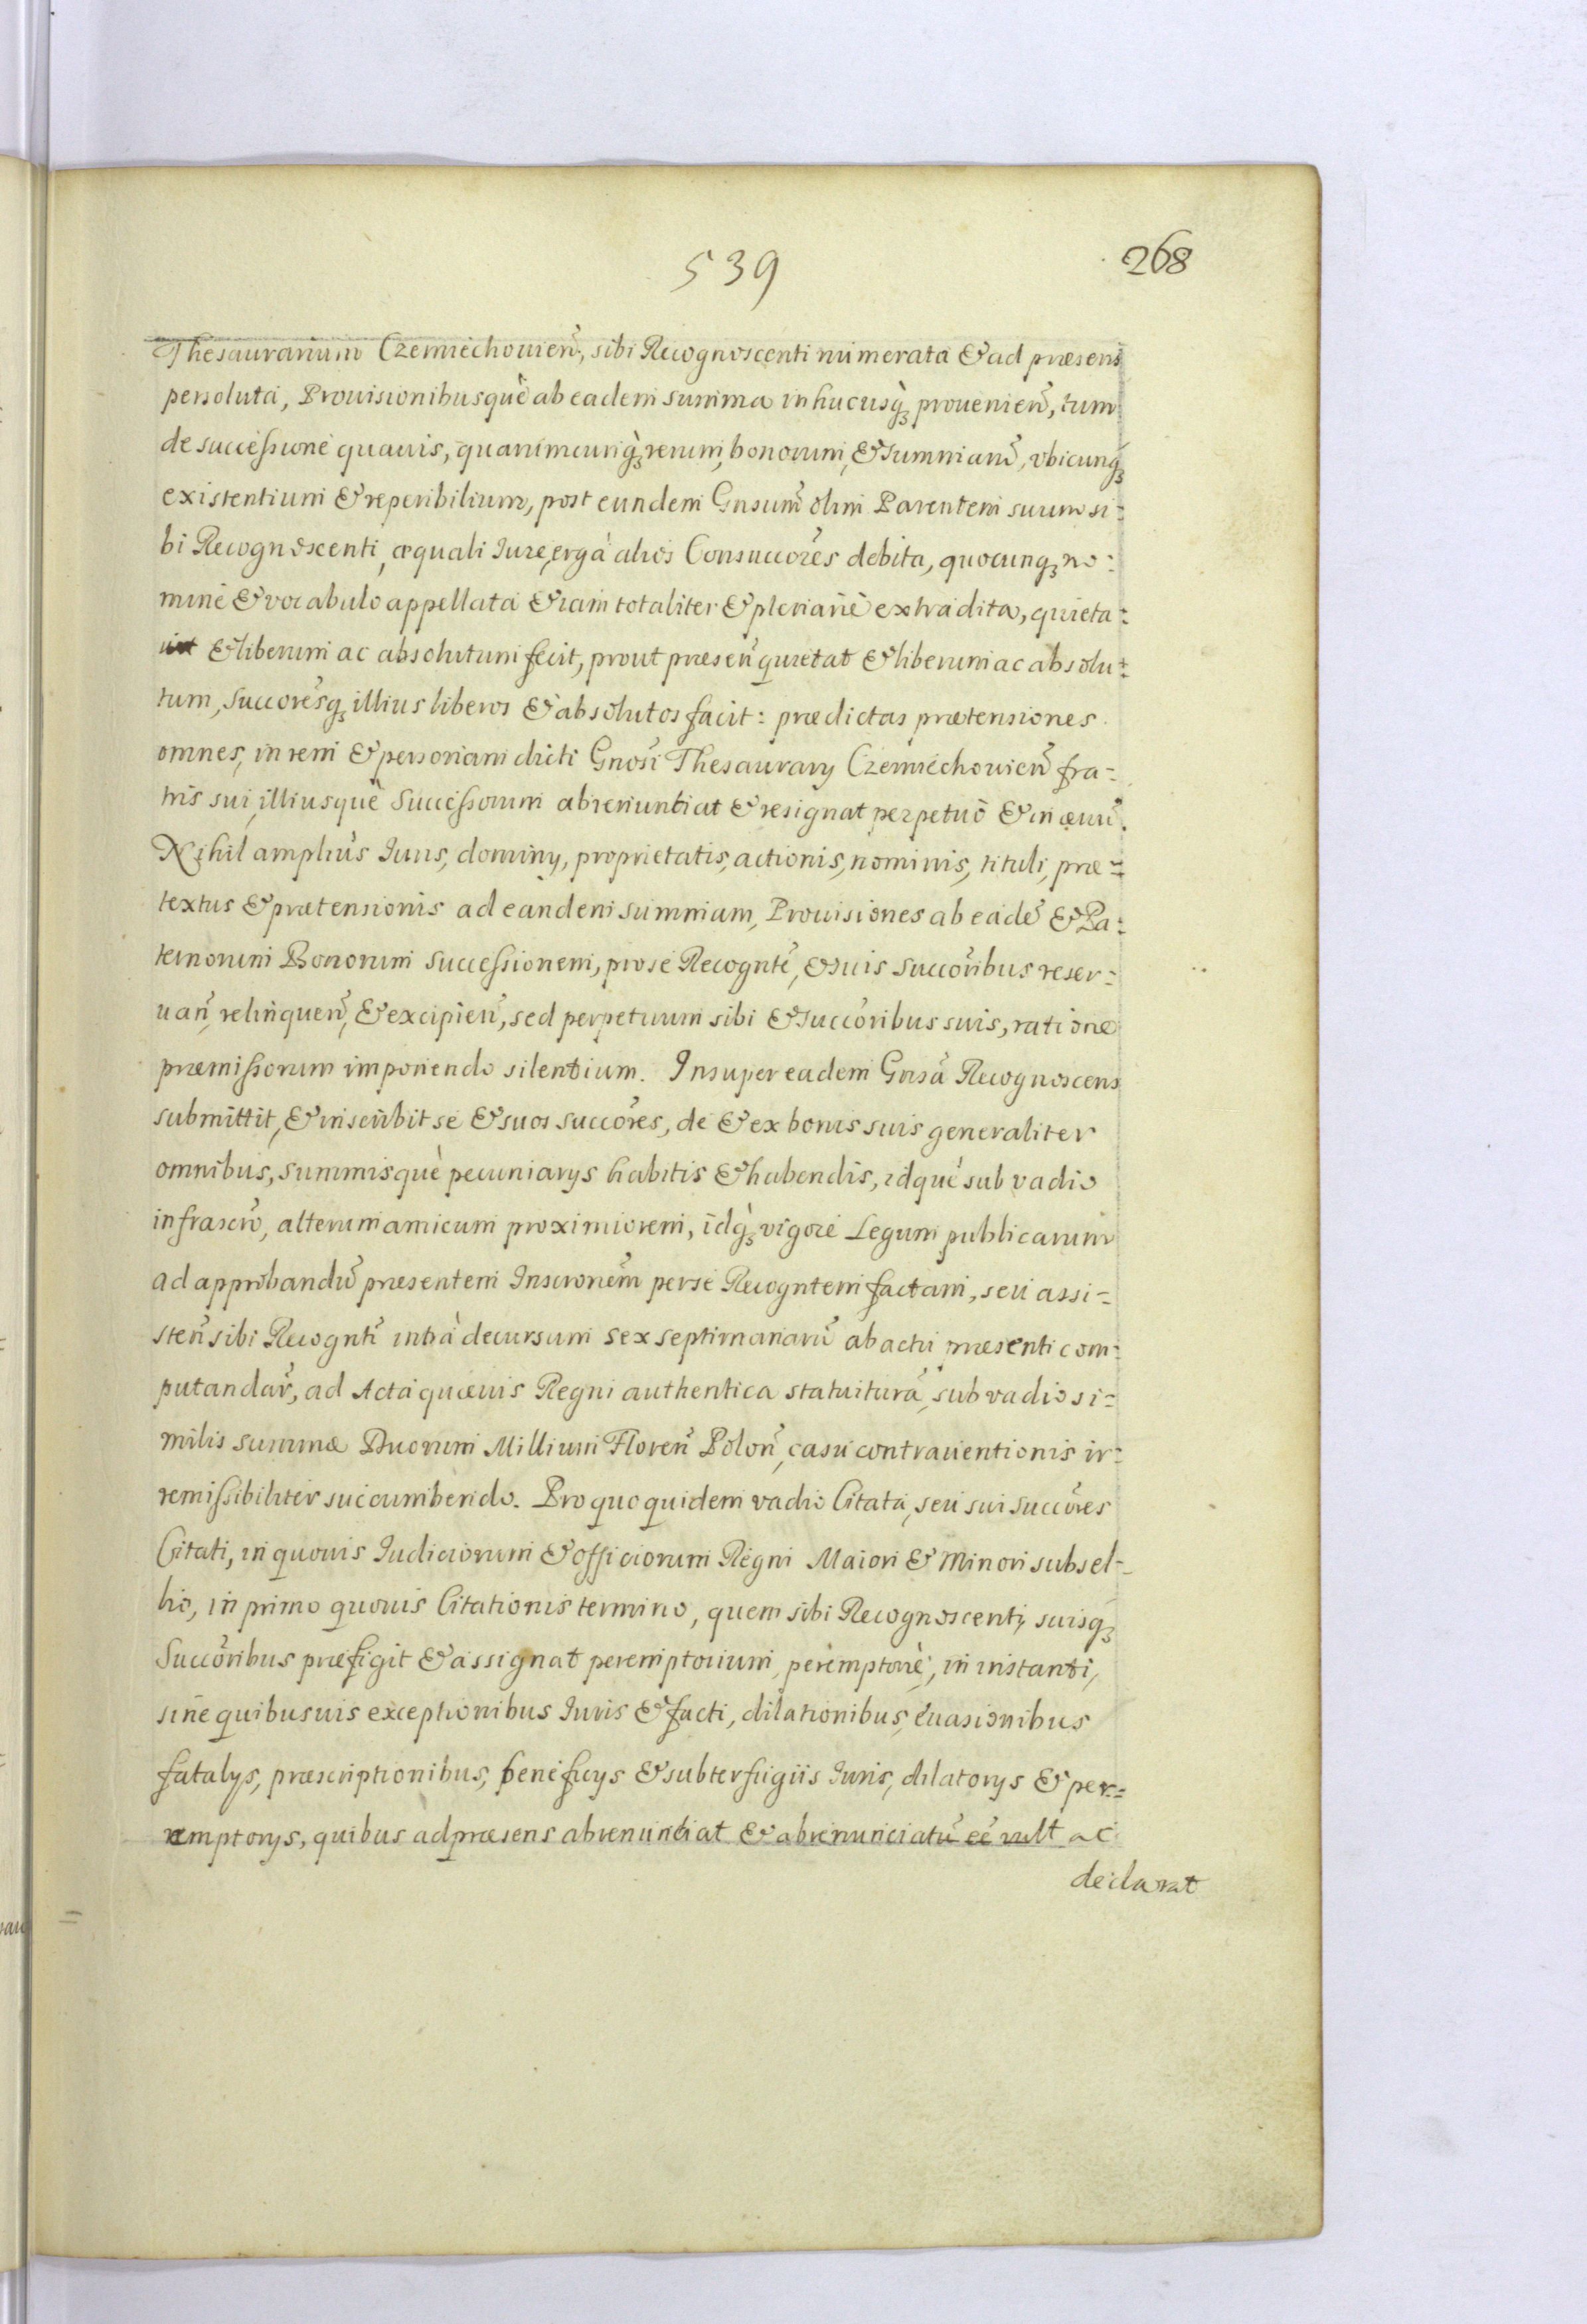 539
268
Thesaurarium Czerniechouien̄, sibi Recognoscenti numerata & ad præsens
persoluta, Prouisionibusquè ab eadem summa in hucusq̀ꝫ prouenien̄, tum
de successione quauis, quarumcunq̀ꝫ rerum, bonorum, & summarū, vbicunqꝫ
existentium & reperibilium, post eundem Gnsum̄ olim Parentem suum si-
bi Recognoscenti, æquali Iure, ergà alios Consuccor̄es debita, quocunqꝫ no-
mine & vocabulo appellata & iam totaliter & plenariè extradita, quieta-
uit & liberum ac absolutum fecit, prout præsen̄ quietat & liberum ac absolu-
tum, Succor̄esqꝫ illius liberos & absolutos facit: prædictas prætensiones
omnes, in rem & personam dicti Gnosi Thesaurarÿ Czerniechouien̄ fra-
tris sui, illiusquè Successorum abrenuntiat & resignat perpetuò & in æuū.
Nihil ampliùs Iuris, dominÿ, proprietatis, actionis, nominis, tituli, præ-
textus & prætensionis ad eandem summam, Prouisiones ab eadē & Pa-
ternorum Bonorum successionem, pro se Recognte, & suis Succoribus reser-
uan̄, relinquen̄, & excipien̄, sed perpetuum sibi & succoribus suis, ratione
præmissorum imponendo silentium. Insuper eadem Gnsa Recognoscens
submittit, & inscribit se & suos succores, de & ex bonis suis generaliter
omnibus, summisquè pecuniarÿs habitis & habendis, idquè sub vadio
infrascr̄o, alterum amicum proximiorem, idq̀ꝫ vigore Legum publicarum
ad approbandū præsentem Inscronem per se Recogntem factam, seu assi-
sten̄ sibi Recognti intrà decursum sex septimanarū ab actu præsenti com-
putandar̄, ad Acta quæuis Regni authentica statuitura, sub vadio si-
milis summæ Duorum Millium Floren̄ Polon̄, casu contrauentionis ir-
remissibiliter succumbendo. Pro quo quidem vadio Citata, seu sui succores
Citati, in quouis Iudiciorum & Officiorum Regni Maiori & Minori subsel-
lio, in primo quouis Citationis termino, quem sibi Recognoscenti, suisqꝫ
Succoribus præfigit & assignat peremptorium, peremptoriè, in instanti,
sine quibusuis exceptionibus Iuris & facti, dilationibus, euasionibus
fatalÿs, præscriptionibus, beneficÿs & subterfugiis Iuris, dilatorÿs & per-
emptorÿs, quibus ad præsens abrenuntiat & abrenunciatū eē vult ac
declarat